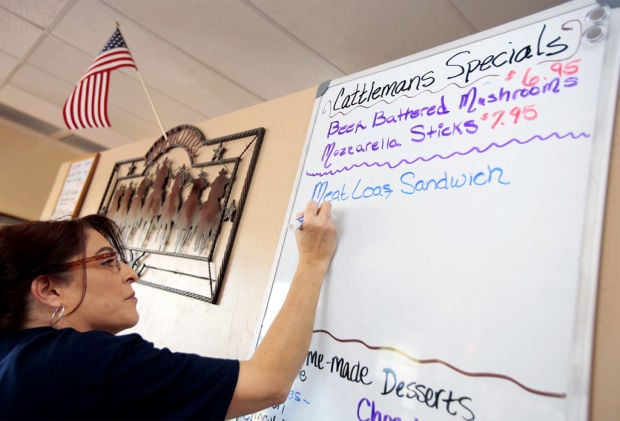 Cattlemans Specials
Beer Battered Mushrooms $6.95
Mozzarella Sticks $7.95
Meat Loas Sandwich
me-made Desserts